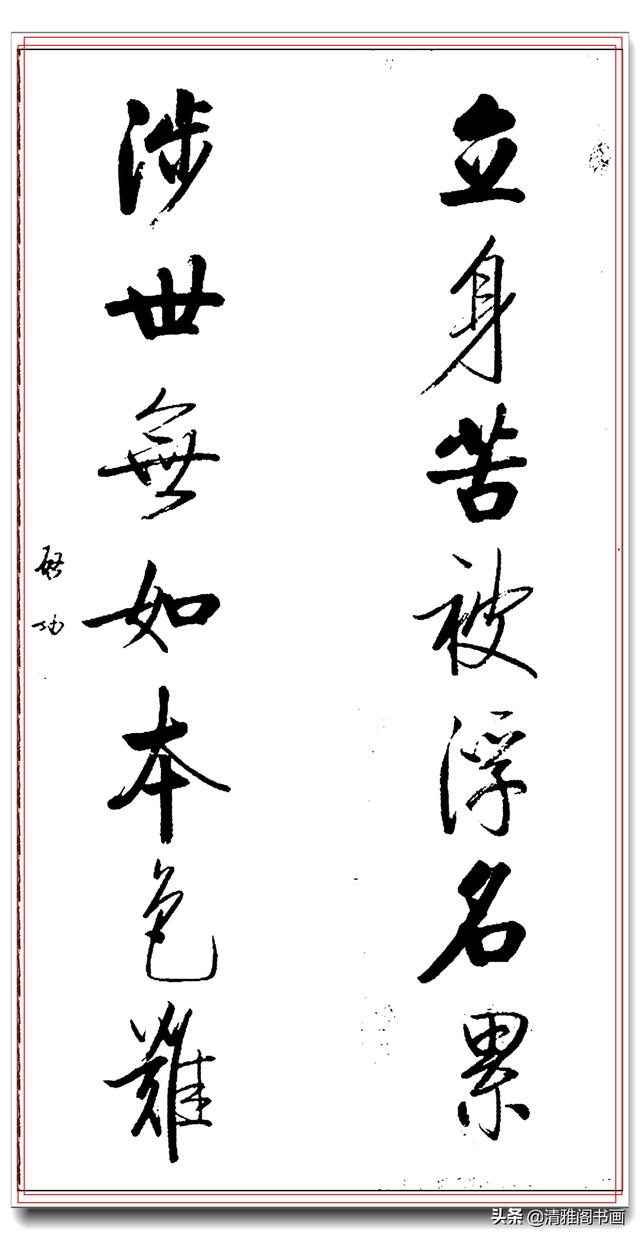 立身苦被浮名累
涉世無如本色難
啓功
头条 @清雅阁书画